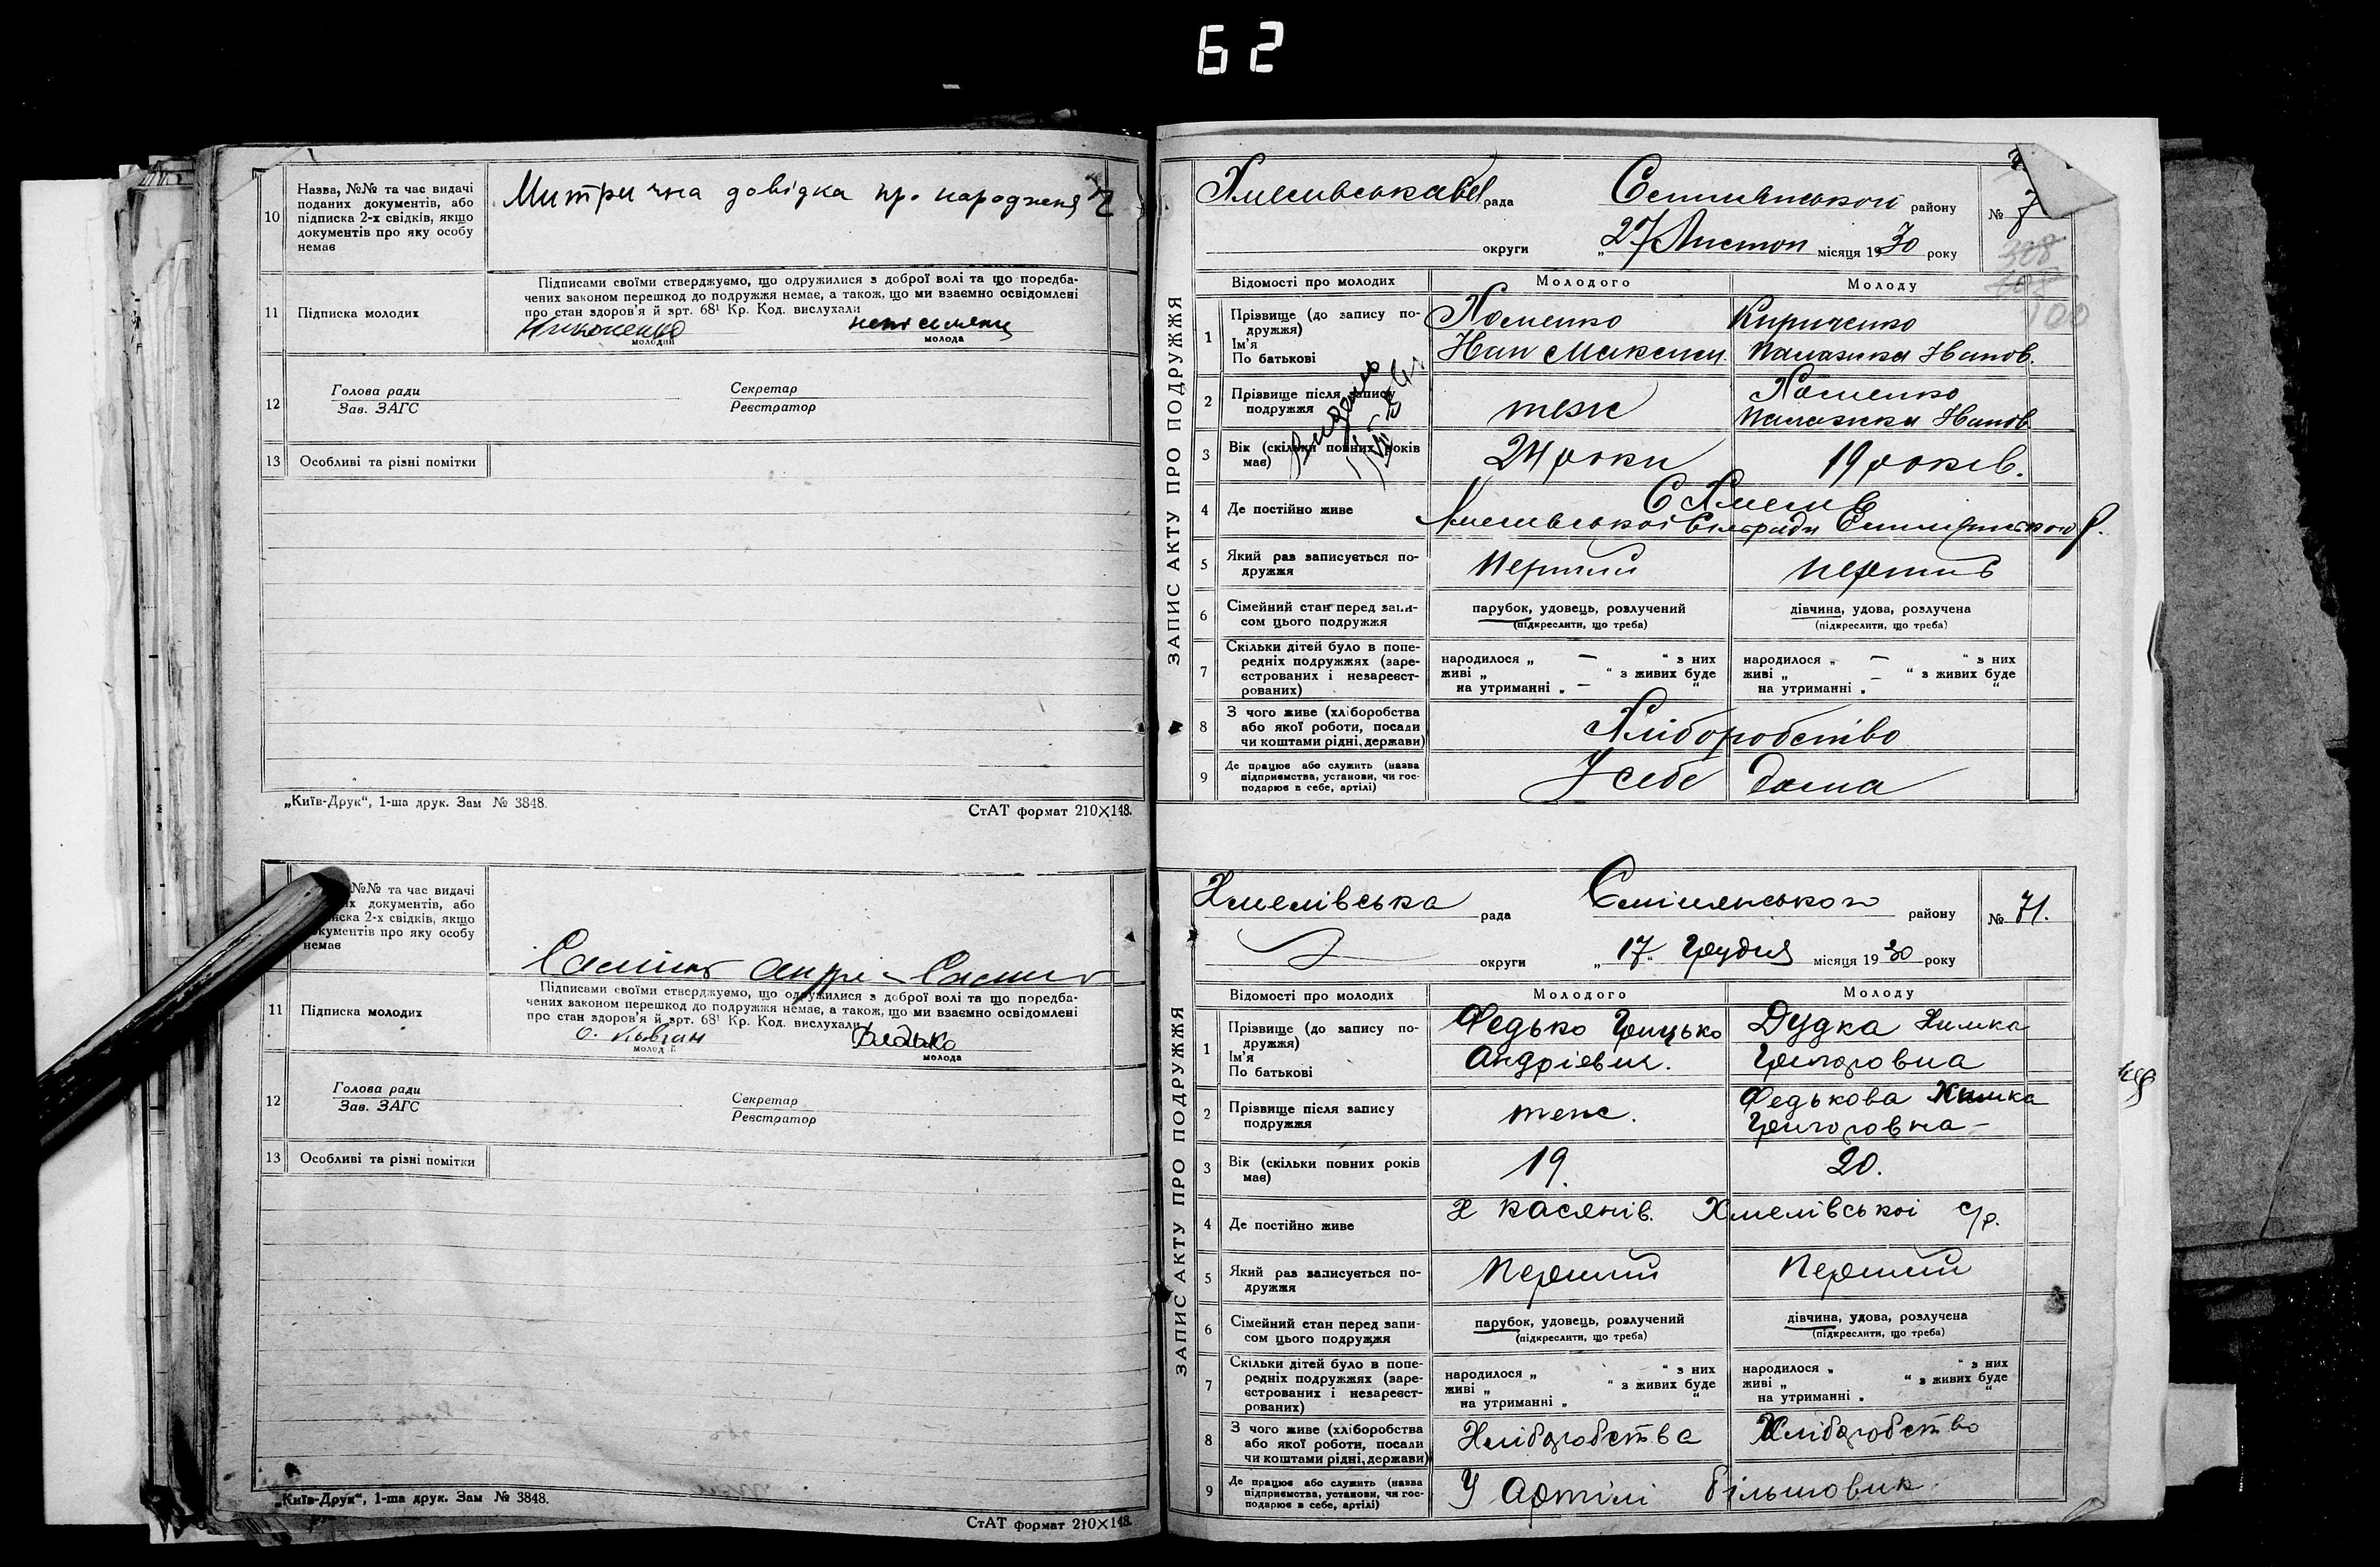 62
10
Назва, №№ та час видачі
поданих документів, або
підписка 2-х свідків, якщо
документів про яку особу
немає
Митрична довідка про народження
11
Підписка молодих
Підписами своїми стверджуємо, що одружилися з доброї волі та що поредба-
чених законом перешкод до подружжя немає, а також, що ми взаємно освідомлені
про стан здоров'я й зрт. 68¹ Кр. Код. вислухали
молодий
молода
12
Голова ради
Зав. ЗАГС
Секретар
Реєстратор
13
Особливі та різні помітки
„Київ-Друк“, 1-ша друк. Зам № 3848.
СтАТ формат 210×148.
№№ та час видачі
их документів, або
иска 2-х свідків, якщо
окументів про яку особу
немає
11
Підписка молодих
Підписами своїми стверджуємо, що одружилися з доброї волі та що поредба-
чених законом перешкод до подружжя немає, а також, що ми взаємно освідомлені
про стан здоров'я й зрт. 68¹ Кр. Код. вислухали
Федько
молодий
молода
12
Голова ради
Зав. ЗАГС
Секретар
Реєстратор
13
Особливі та різні помітки
„Київ-Друк“, 1-ша друк. Зам № 3848.
СтАТ формат 210×148.
ЗАПИС АКТУ ПРО ПОДРУЖЖЯ
рада
району
№ 7
округи
„27 Листоп місяця 1930 року
328
108
100
Відомості про молодих
Молодого
Молоду
1
Прізвище (до запису по-
дружжя)
Ім'я
По батькові
Хоменко
Іван Максим.
Кириченко
Палажка Іванов.
2
Прізвище після запису
подружжя
теж
Хоменко
Палажка Іванов
3
Вік (скільки повних років
має)
24 роки
19 років.
4
Де постійно живе
С Хмелів
Хмелівської Сільради Смілянського р.
5
Який раз записується по-
дружжя
Перший
перший
6
Сімейний стан перед запи-
сом цього подружжя
парубок, удовець, розлучений
(підкреслити, що треба)
дівчина, удова, розлучена
(підкреслити, що треба)
7
Скільки дітей було в попе-
редніх подружжях (заре-
єстрованих і незареєст-
рованих)
народилося „ — “ з них
живі „ “ з живих буде
на утриманні „ — “
народилося „ — “ з них
живі „ — “ з живих буде
на утриманні „ “
8
З чого живе (хліборобства
або якої роботи, посади
чи коштами рідні, держави)
Хліборобство
9
Де працює або служить (назва
підприємства, установи, чи гос-
подарює в себе, артілі)
У себе дома
ЗАПИС АКТУ ПРО ПОДРУЖЖЯ
Хмелівська рада
Смілянського району
№ 71.
округи
„17“ Грудня місяця 1930 року
Відомості про молодих
Молодого
Молоду
1
Прізвище (до запису по-
дружжя)
Ім'я
По батькові
Федько Грицько
Андрієвич.
Дудка Химка
Григоровна
2
Прізвище після запису
подружжя
теж.
Федькова Химка
Григоровна
3
Вік (скільки повних років
має)
19
20.
4
Де постійно живе
Х Касянів. Хмелівської с/р.
5
Який раз записується по-
дружжя
Перший
Перший
6
Сімейний стан перед запи-
сом цього подружжя
парубок, удовець, розлучений
(підкреслити, що треба)
дівчина, удова, розлучена
(підкреслити, що треба)
7
Скільки дітей було в попе-
редніх подружжях (заре-
єстрованих і незареєст-
рованих)
народилося „ “ з них
живі „ “ з живих буде
на утриманні „
народилося „ “ з них
живі „ “ з живих буде
на утриманні „ “
8
З чого живе (хліборобства
або якої роботи, посади
чи коштами рідні, держави)
Хліборобства
Хліборобство
9
Де працює або служить (назва
підприємства, установи, чи гос-
подарює в себе, артілі)
У Артілі Більшовик